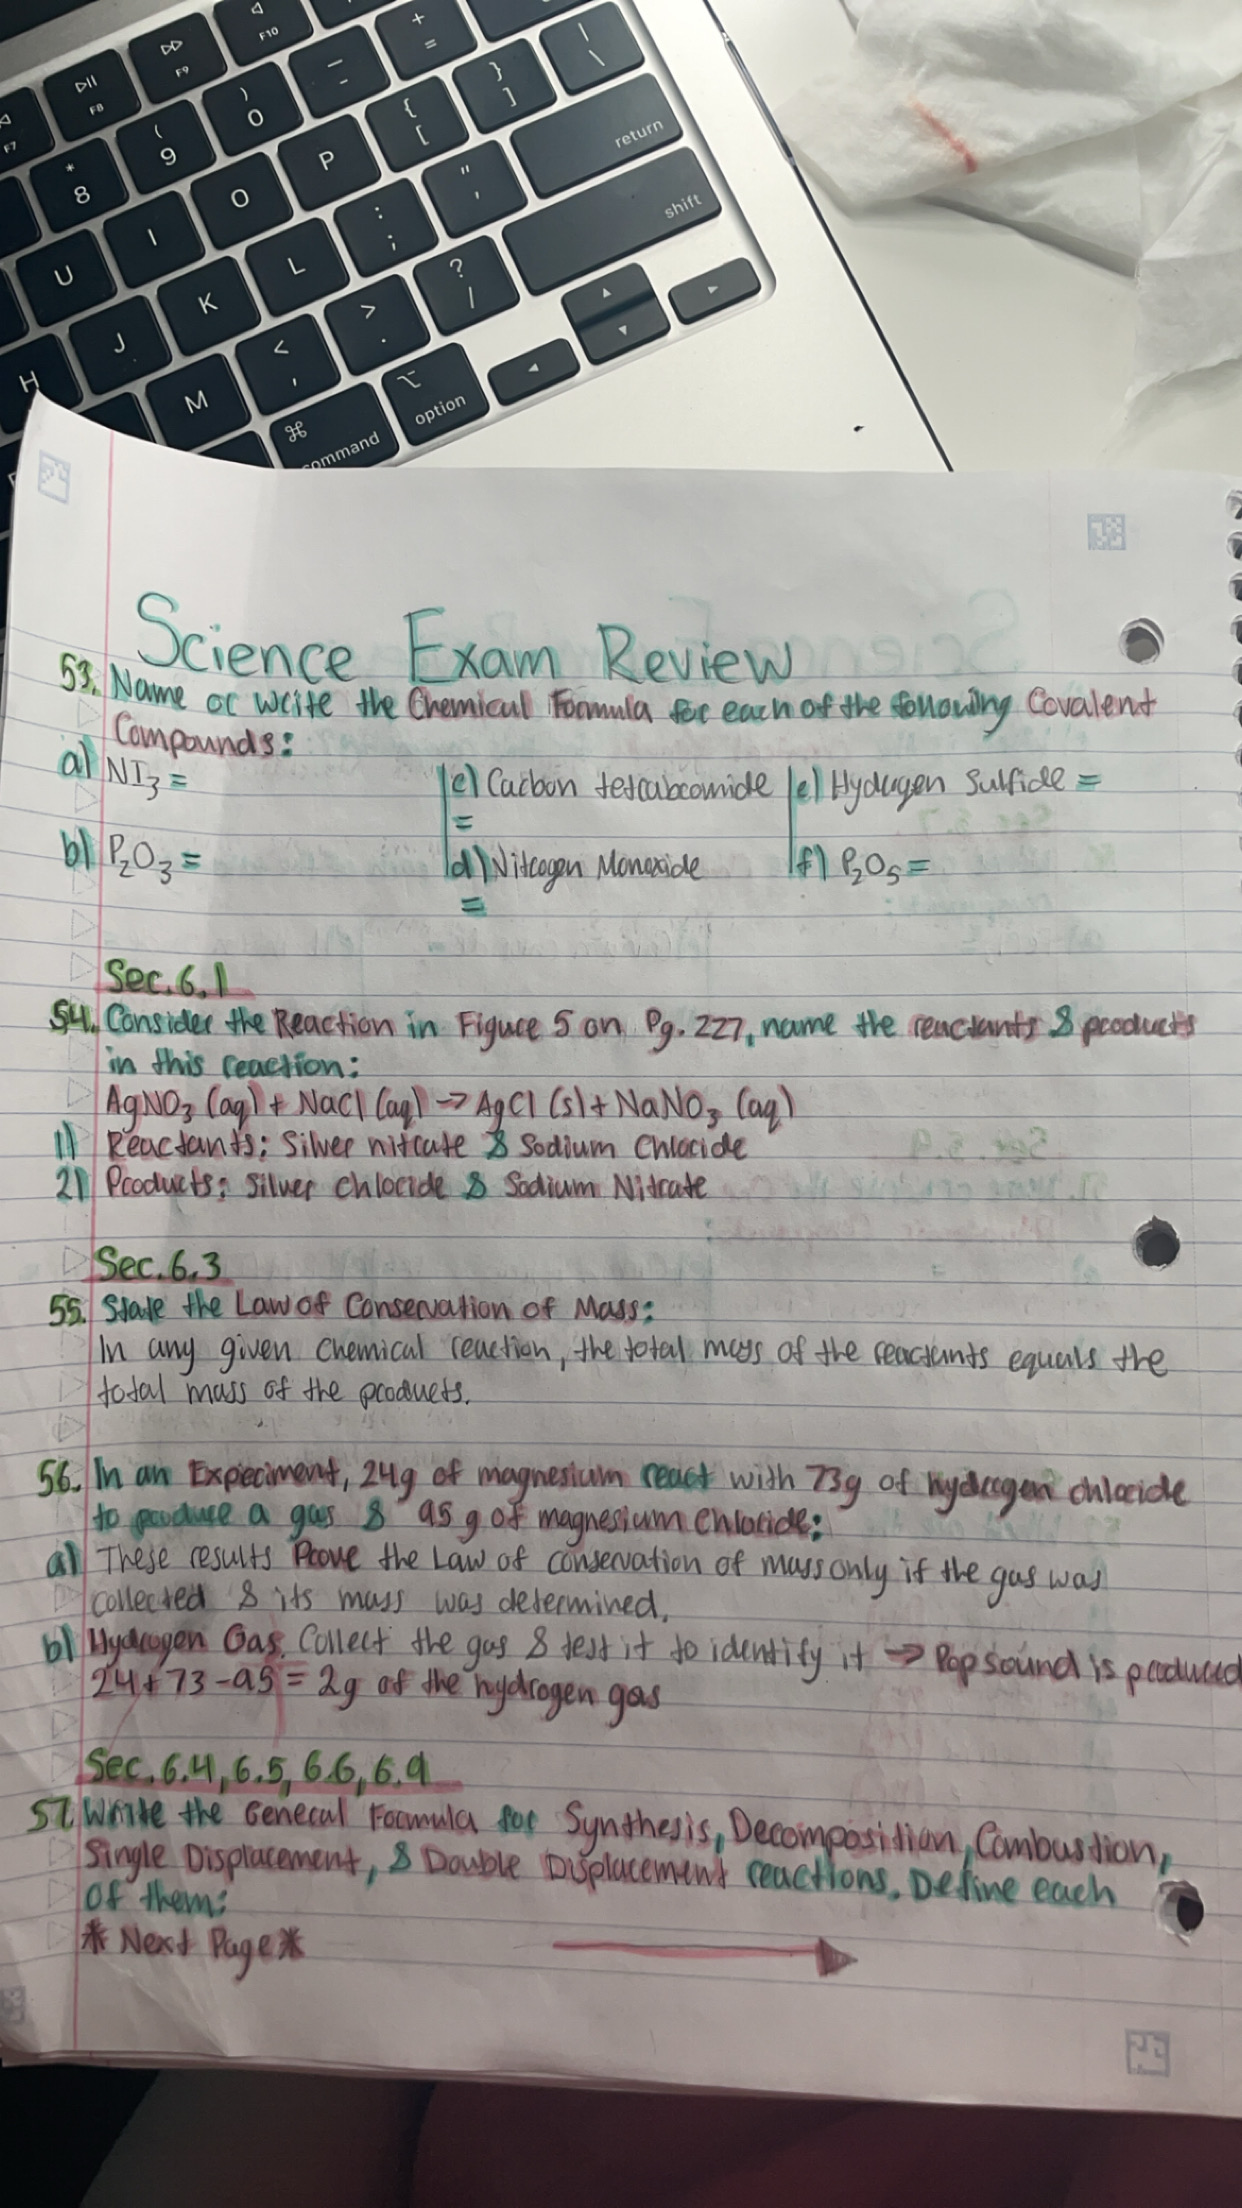 F10
+
=
|
\
F9
—
-
}
]
F8
)
0
{
[
return
F7
(
9
P
"
'
*
8
O
:
;
shift
I
L
?
/
U
K
>
.
J
<
,
option
H
M
⌘
command
Science Exam Review
53. Name or write the Chemical Formula for each of the following Covalent
Compounds:
a) NI₃ =
c) Carbon tetrabromide
=
e) Hydrogen Sulfide =
b) P₂O₃ =
d) Nitrogen Monoxide
=
f) P₂O₅ =
Sec. 6.1
54. Consider the Reaction in Figure 5 on Pg. 227, name the reactants & products
in this reaction:
AgNO₃ (aq) + NaCl (aq) → AgCl (s) + NaNO₃ (aq)
1) Reactants: Silver nitrate & Sodium Chloride
2) Products: Silver chloride & Sodium Nitrate
Sec. 6.3
55. State the Law of Conservation of Mass:
In any given chemical reaction, the total mass of the reactants equals the
total mass of the products.
56. In an Experiment, 24g of magnesium react with 73g of hydrogen chloride
to produce a gas & 95 g of magnesium chloride:
a) These results Prove the Law of conservation of mass only if the gas was
collected & its mass was determined.
b) Hydrogen Gas. Collect the gas & test it to identify it → Pop sound is produced
24 + 73 - 95 = 2g of the hydrogen gas
Sec. 6.4, 6.5, 6.6, 6.9
57. Write the General Formula for Synthesis, Decomposition, Combustion,
Single Displacement, & Double Displacement reactions. Define each
of them:
* Next Page *